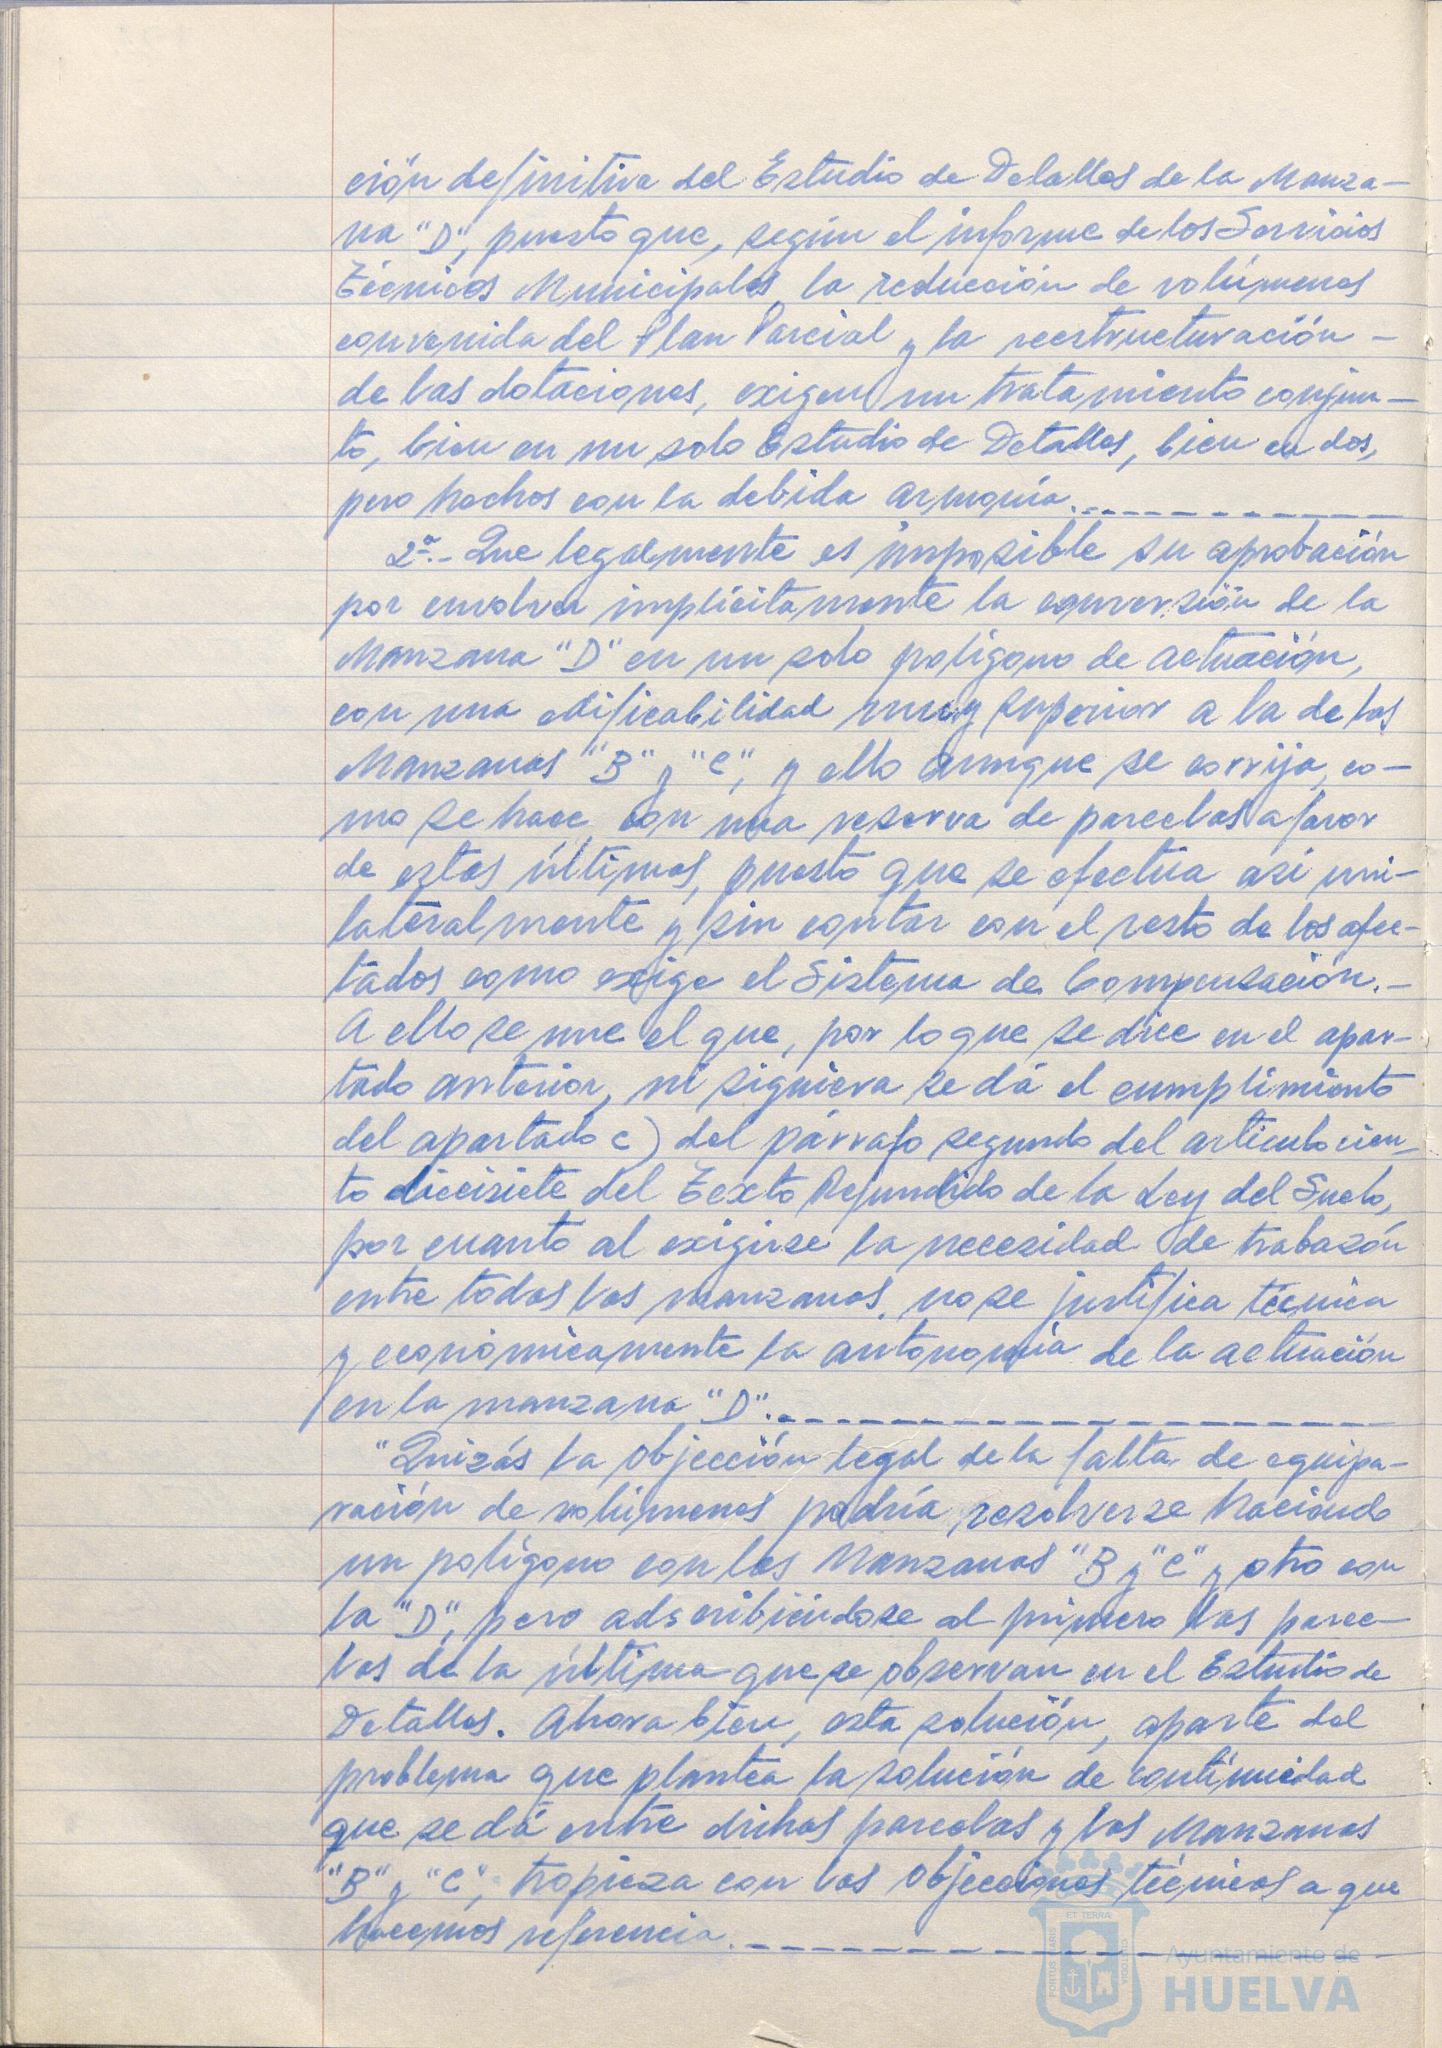 ción definitiva del Estudio de Detalles de la Manza-
na "D", puesto que, según el informe de los Servicios
Técnicos Municipales, la reducción de volúmenes
convenida del Plan Parcial y la reestructuración -
de las dotaciones, exigen un tratamiento conjun-
to, bien en un solo Estudio de Detalles, bien en dos,
pero hechos con la debida armonía.
2º.- Que legalmente es imposible su aprobación
por envolver implícitamente la conversión de la
Manzana "D" en un solo polígono de actuación,
con una edificabilidad muy superior a la de las
Manzanas "B" y "C", y ello aunque se corrija, co-
mo se hace, con una reserva de parcelas a favor
de estas últimas, puesto que se efectúa asi uni-
lateralmente y sin contar con el resto de los afec-
tados como exige el Sistema de Compensación.-
A ello se une el que, por lo que se dice en el apar-
tado anterior, ni siquiera se dá el cumplimiento
del apartado c) del párrafo segundo del articulo cien-
to diecisiete del Texto Refundido de la Ley del Suelo,
por cuanto al exigirse la necesidad de trabazón
entre todas las manzanas, no se justifica técnica
y económicamente la autonomia de la actuación
en la manzana "D".
"Quizás la objección legal de la falta de equipa-
ración de volúmenes podría resolverse haciendo
un polígono con las Manzanas "B y "C" y otro con
la "D", pero adscribiéndose al primero las parce-
las de la última que se observan en el Estudio de
Detalles. Ahora bien, esta solución, aparte del
problema que plantea la solución de continuidad
que se dá entre dichas parcelas y las Manzanas
"B" y "C", tropieza con las objecciones técnicas a que
hacemos referencia.
PORTUS MARIS
ET TERRA
CUSTODIA
Ayuntamiento de
HUELVA